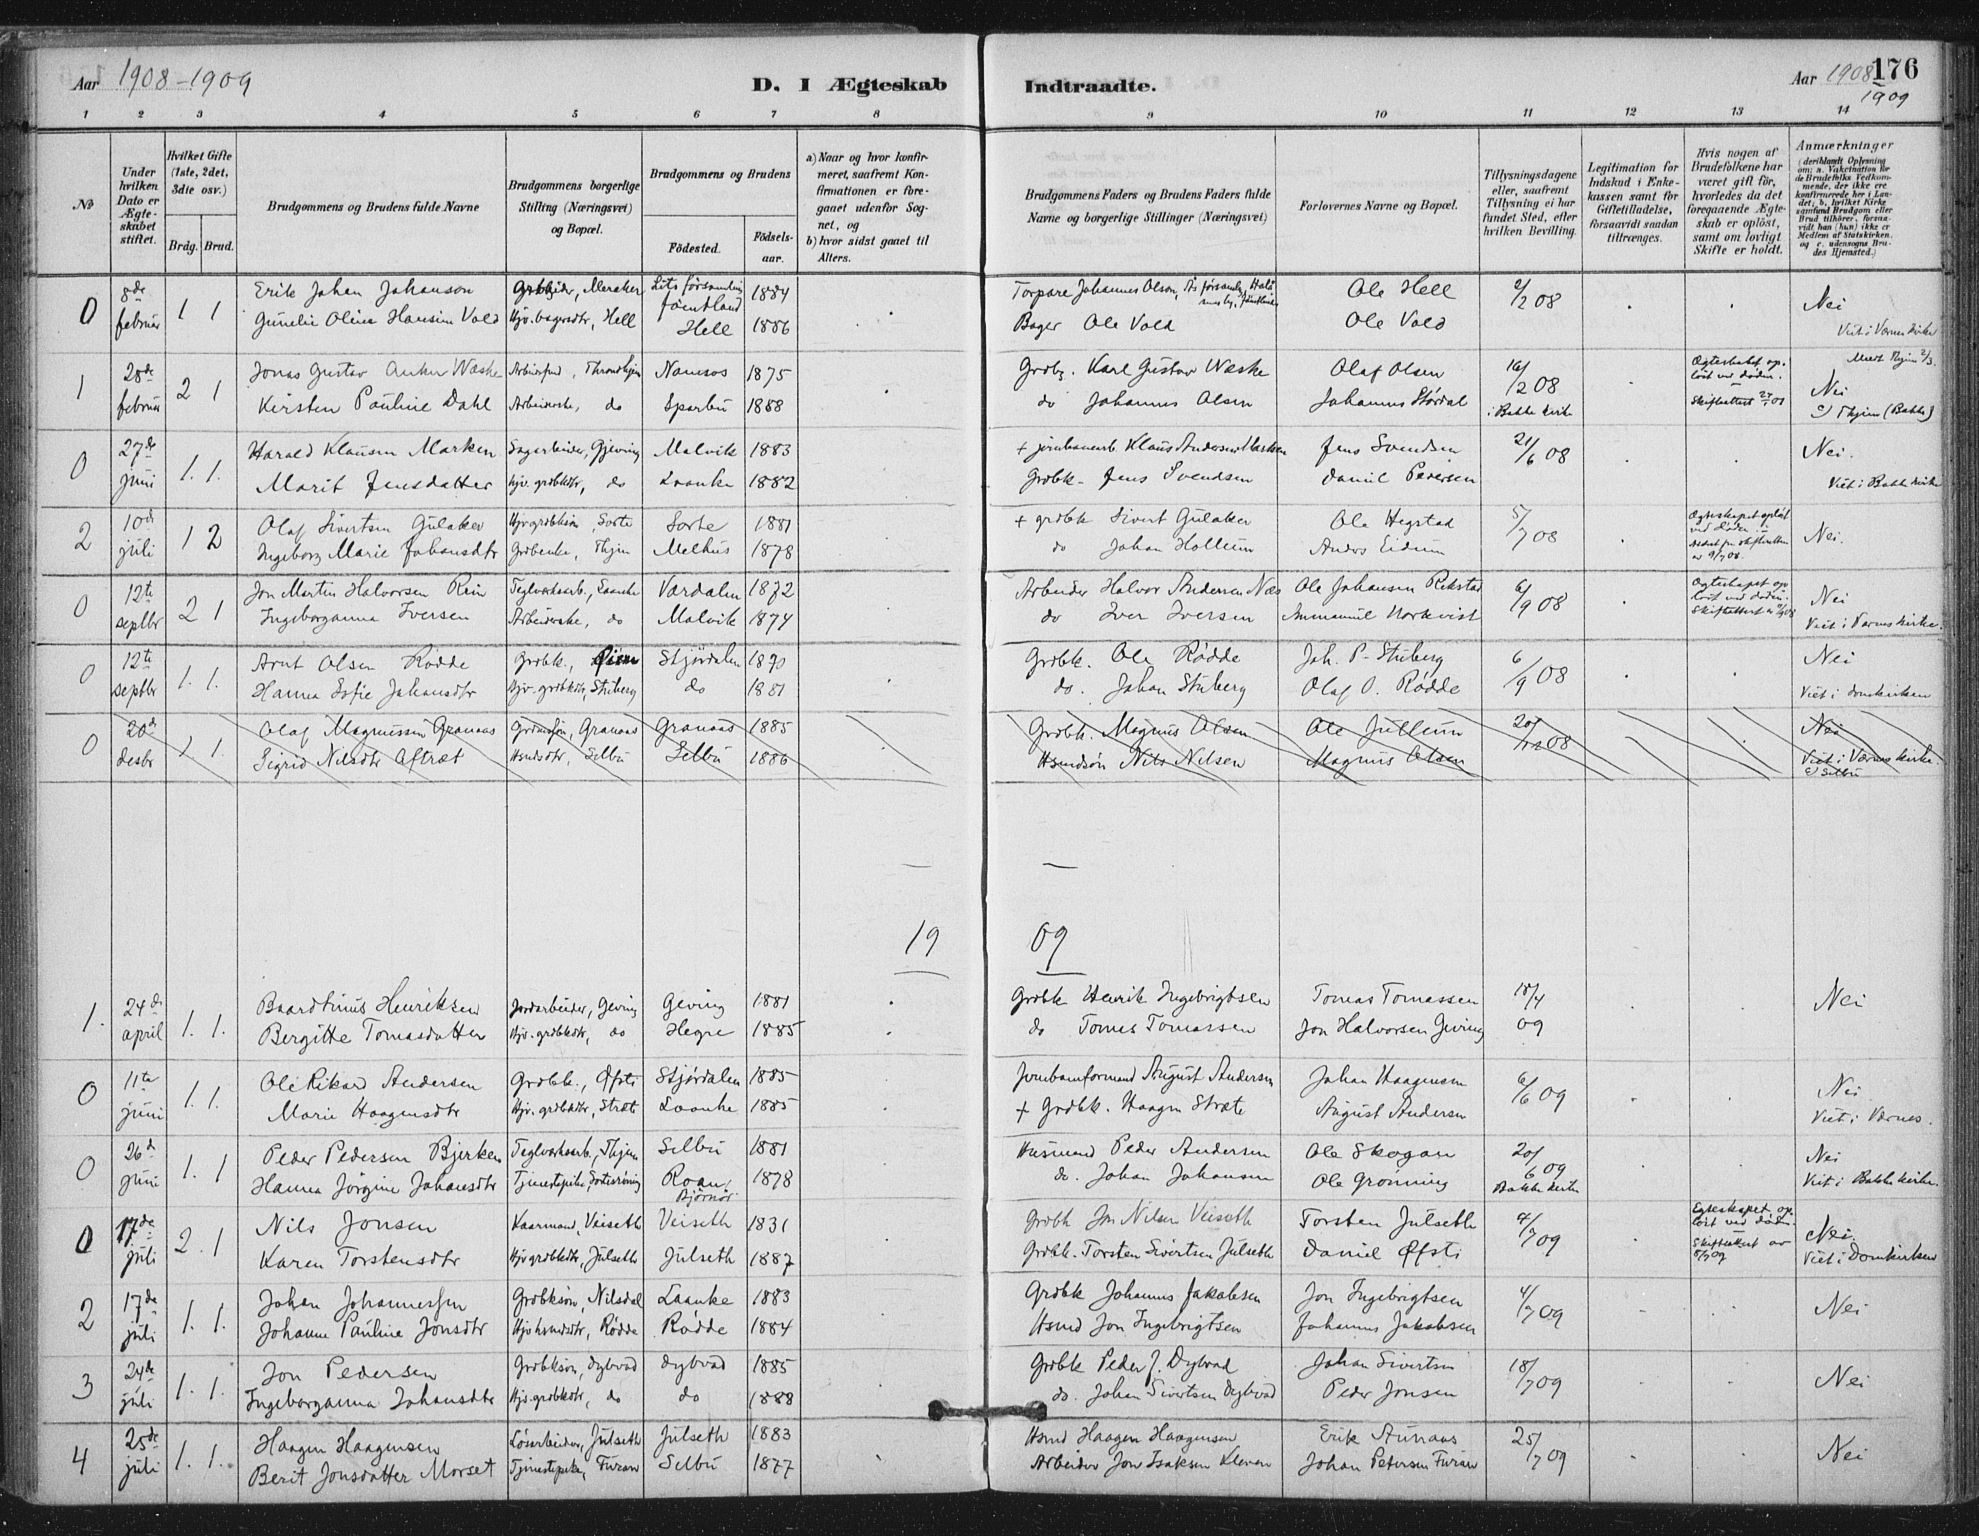 Aar 1908-1909
D. I Ægteskab
Indtraadte.
Aar 1908
176
1909
1 2 3 4 5 6 7 8
9 10 11 12 13 14
No
Under hvilken Dato er Ægteskabet stiftet.
Hvilket Gifte (1ste, 2det, 3die osv.)
Brdg. Brud.
Brudgommens og Brudens fulde Navne
Brudgommens borgerlige Stilling (Næringsvei) og Bopæl.
Brudgommens og Brudens
Födested.
Födselsaar.
a) Naar og hvor konfirmeret, saafremt Konfirmationen er foregaaet udenfor Sognet, og
b) hvor sidst gaaet til Alters.
Brudgommens Faders og Brudens Faders fulde Navne og borgerlige Stillinger (Næringsvei)
Forlovernes Navne og Bopæl.
Tillysningsdagene eller, saafremt Tillysning ei har fundet Sted, efter hvilken Bevilling.
Legitimation for Indskud i Enkekassen samt for Giftetilladelse, forsaavidt saadan tiltrænges.
Hvis nogen af Brudefolkene har været gift før, hvorledes da det foregaaende Ægteskab er oplöst, samt om lovligt Skifte er holdt.
Anmærkninger
(deriblandt Oplysning om: a. Vakcination for de Brudefolks Vedkommende, der ikke ere konfirmerede her i Landet; b. hvilket Kirkesamfund Brudgom eller Brud tilhörer, forsaavidt han (hun) ikke er Medlem af Statskirken, og c. udensogns Brudes Hjemsted.)
0 8de februar 1 1 Erik Johan Johanson Meraker 1884 Torpare Johannes Olson, Ole Hell 2/2 08 Nei
Gunelie Oline Hansine Vold Hjv. bagersdtr, Hell Hell 1886 Bager Ole Vold Ole Vold Viet i Værnes kirke
1 28de februar 2 1 Jonas Gustav Anker Wæske Throndhjem Namsos 1875 Grdbr. Karl Gustav Wæske Olaf Olsen 16/2 08 Ægteskabet opløst ved døden. Nei
Kirsten Pauline Dahl Arbeiderske, do Sparbu 1888 do Johannes Olsen Johannes Stördal i Bakke kirke c) Thjem (Bakke)
0 27de juni 1. 1. Harald Klausen Marken Sagarbeider, Gjeving Malvik 1883 + jernbanearb. Klaus Andersen Marken Jens Svendsen 21/6 08 Nei.
Marit Jensdatter hjv. grdbkdtr, do Laanke 1882 Grdbk. Jens Svendsen Daniel Pedersen Viet i Bakke kirke
2 10de juli 1 2 Olaf Sivertsen Gulaker Hjv grdbksøn Sorte Sorte 1881 + grdbk Sivert Gulaker Ole Hegstad 5/7 08 Nei.
Ingeborg Marie Johansdtr Grdbenke, Thjem Melhus 1878 do Johan Hollum Anders Eidum
0 12te septbr 2 1 Jon Martin Halvorsen Rein Teglverksarb., Laanke Værdalen 1872 Arbeider Halvor Andersen Næs Ole Johansen Rekstad 6/9 08 Nei
Ingeborganna Iversen Arbeiderske, do Malvik 1874 do Iver Iversen Immanuel Norkvist Viet i Værnes kirke.
0 12te septbr 1. 1. Arnt Olsen Rødde Grdbk., Stjørdalen 1870 Grdbk. Ole Rødde Joh. P. Stuberg 6/9 08 Nei
Hanna Sofie Johansdtr Hjv. grdbkdtr, Stuberg do 1881 do. Johan Stuberg Olaf O. Rødde Viet i Domkirken
0 20de desbr 1. 1. Olaf Magnussen Granaas Granaas Granaas 1885 Grdbk. Magnus Olsen Ole Jullum 20/12 08 Nei
Sigrid Nilsdtr Aftræt Hsmdsdtr, Selbu Selbu 1886 Hsmdsøn Nils Nilsen Magnus Olsen Viet i Værnes kirke. c) Selbu
19 09
1. 24de april 1. 1. Baardtinus Henriksen Jordarbeider, Geving Geving 1881 Grdbk Henrik Ingebrigtsen Tomas Tomassen 18/4 09 Nei
Bergitte Tomasdatter Hjv. grdbkdtr, do Hegre 1885 do Tomas Tomassen Jon Halvorsen Geving
0 11te juni 1. 1. Ole Rikard Andersen Grdbk., Øfsti Stjørdalen 1885 Jernbaneformand August Andersen Johan Haagensen 6/6 09 Nei
Marie Haagensdtr Hjv. grdbkdtr, Stræte Laanke 1885 + Grdbk. Haagen Stræte August Andersen Viet i Værnes.
0 26de juni 1. 1 Peder Pedersen Bjerken Teglverksarb., Thjem Selbu 1881 Husmand Peder Andersen Ole Skogan 20/6 09 Nei
Hanna Jørgine Johansdtr Tjenestepike, Roan, Bjørnør 1878 do. Johan Johansen Ole Grønning Bakke kirke Viet i Bakke kirke.
0 17de juli 2. 1 Nils Jonsen Kaarmand, Veiseth Veiseth 1831 Grdbk Jon Nilsen Veiseth Torsten Julseth 4/7 09 Egteskapet opløst ved døden. Nei.
Karen Torstensdtr Hjv grdbkdtr, Julseth Julseth 1887 Grdbk. Torsten Sivertsen Julseth Daniel Øfsti Viet i Domkirken
2 17de juli 1. 1. Johan Johannessen Grdbksøn, Nilsdal Laanke 1883 Grdbk Johannes Jakobsen Jon Ingebrigtsen 4/7 09 Nei
Johanna Pauline Jonsdtr Hjv hsmdsdtr, Rødde Rødde 1884 Hsmd Jon Ingebrigtsen Johannes Jakobsen
3 24de juli 1. 1. Jon Pedersen Grdbksøn, Dybvad Dybvad 1885 Grdbk Peder J. Dybvad Johan Sivertsen 18/7 09 Nei
Ingeborganna Johansdtr Hjv. grdbkdtr, do do 1888 do. Johan Sivertsen Dybvad Peder Jonsen
4 25de juli 1. 1. Haagen Haagensen Løsarbeider, Julseth Julseth 1883 Hsmd Haagen Haagensen Erik Aunaas 25/7 09 Nei
Berit Jonsdatter Morset Tjenestepike, Furan Selbu 1877 Arbeider Jon Isaksen Kleven Johan Petersen Furan